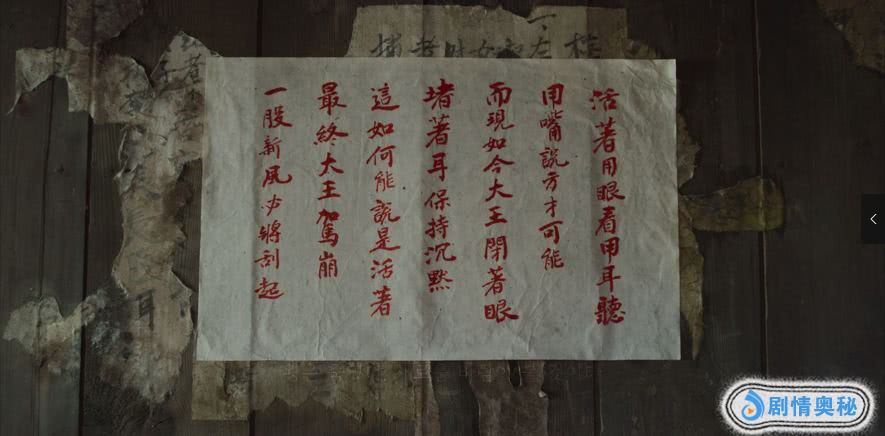 活著用眼看用耳聽
用嘴說方才可能
而現如今大王閉著眼
堵著耳保持沉默
這如何能說是活著
最終大王駕崩
一股新風必將刮起
剧情奥秘